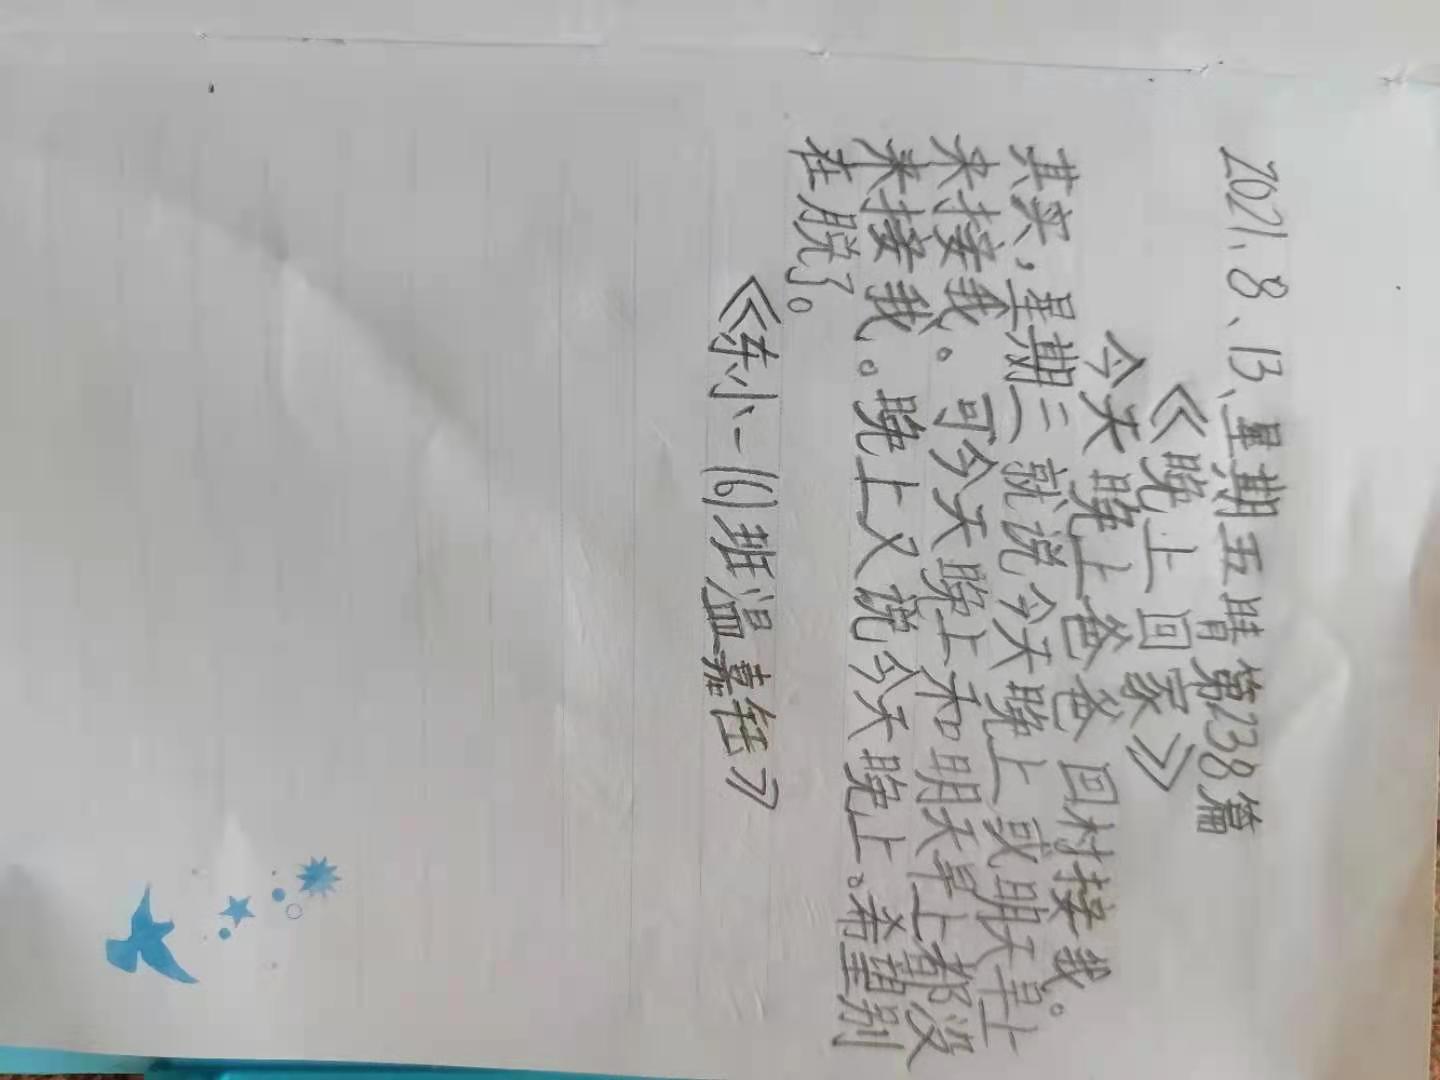 2021、8、13、星期五晴第238篇
《晚上回家》
今天晚上爸爸回村接我。
其实,星期三就说今天晚上或明天早上
来接我。可今天晚上和明天早上都没
来接我。晚上又说今天晚上。希望别
在脱了。
《东小一(6)班温嘉钰》